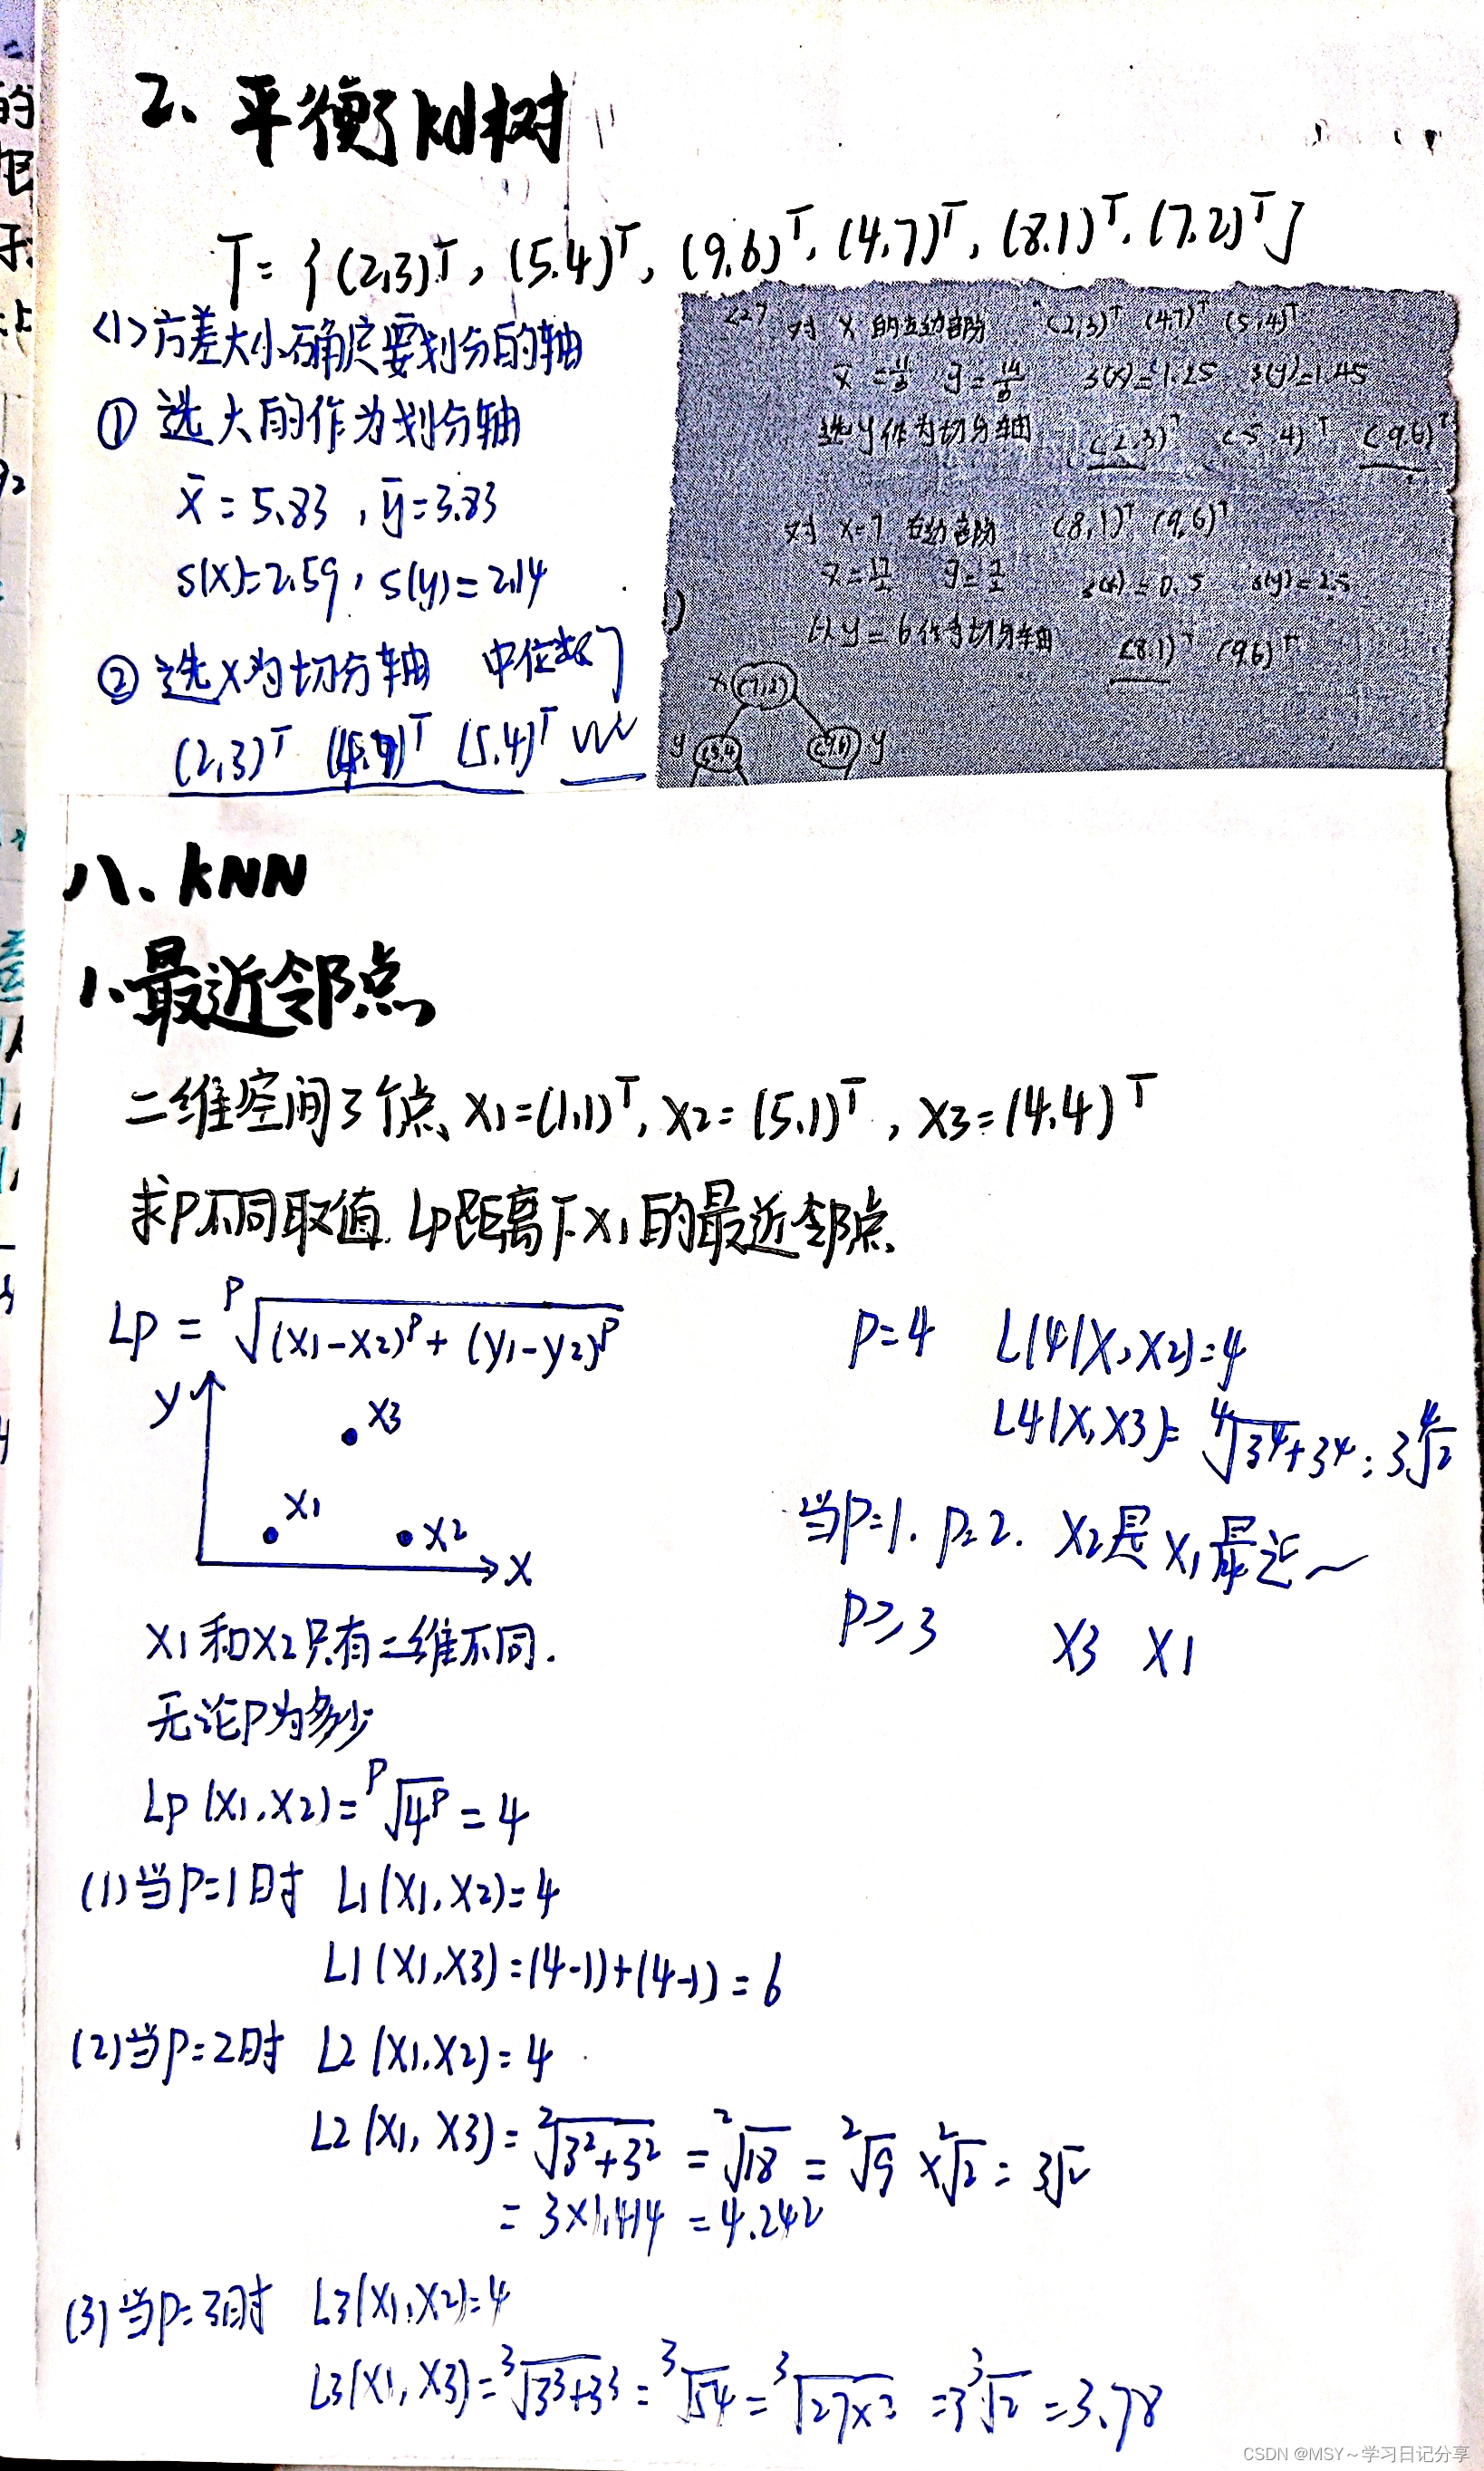 2、平衡kd树
T={(2,3)ᵀ, (5.4)ᵀ, (9.6)ᵀ, (4.7)ᵀ, (8.1)ᵀ, (7.2)ᵀ}
<1>方差大小确定要划分的轴
① 选大的作为划分轴
x̄=5.83, ȳ=3.83
S(x)=2.59, S(y)=2.14
② 选X为切分轴 中位数7
(2,3)ᵀ (4.7)ᵀ (5.4)ᵀ
<2> 对X的左边部分 (2,3)ᵀ (4.7)ᵀ (5.4)ᵀ
x̄=11/3 ȳ=14/3 S(x)=1.25 S(y)=1.45
选y作为切分轴 (2.3)ᵀ (5.4)ᵀ (9.6)ᵀ
对 x=7 右边部分 (8.1)ᵀ (9,6)ᵀ
x̄=17/2 ȳ=7/2 S(x)=0.5 S(y)=2.5
以y=6作为切分轴 (8.1)ᵀ (9.6)ᵀ
x (7,2)
y (5,4) (9,6) y
八、KNN
1、最近邻点
二维空间3个点 X1=(1,1)ᵀ, X2=(5,1)ᵀ, X3=(4.4)ᵀ
求P不同取值, Lp距离下X1的最近邻点
Lp = ᵖ√((x1-x2)ᵖ+(y1-y2)ᵖ)
y
X3
X1
X2
X
X1和X2只有二维不同.
无论P为多少
Lp(X1,X2)=ᵖ√4ᵖ=4
(1)当P=1时 L1(X1,X2)=4
L1(X1,X3)=(4-1)+(4-1)=6
(2)当P=2时 L2(X1,X2)=4
L2(X1,X3)=²√(3²+3²)=²√18=²√9×²√2=3√2
=3×1.414=4.242
(3)当P=3时 L3(X1,X2)=4
L3(X1,X3)=³√(3³+3³)=³√54=³√(27×2)=3³√2=3.78
P=4 L(4(X,X2)=4
L4(X,X3)=⁴√(3⁴+3⁴)=3⁴√2
当P=1. P=2. X2是X1最近~
P≥3 X3 X1
CSDN @MSY~学习日记分享